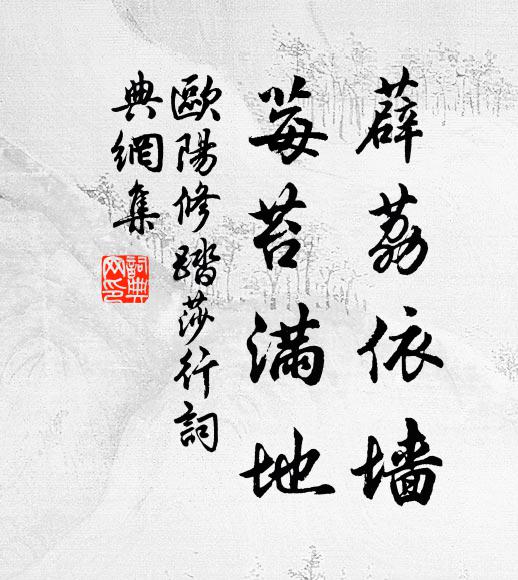 薜荔依墙
莓苔满地
歐陽修踏莎行詞
典網集
詞典网印